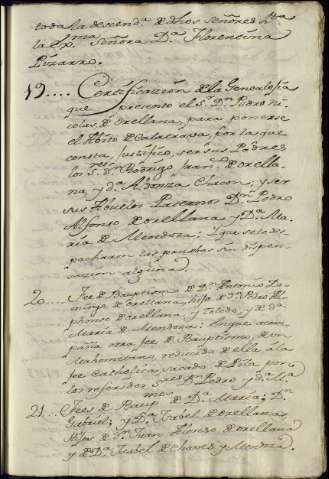 toda la descenda. de dhos Señores
la Ex.ma Señora D.a Florencina
Pizarro.
19.... Certificazion de la Genealojia
que presento el S.r D.n Pedro Ni
colas de Orellana, para ponerse
el Abito de Calatrava, por la que
consta, justifico, ser sus Padres
los S.res D.n Rodrigo de Orella
na, y D.a Aldonza Chacon; y ser
sus Abuelos Paternos D.n Pedro
Alfonso de Orellana y D.a Ma
ria de Mendoza; y que se des
pacharon las pruebas sin dispen
sazion alguna.
20.... Fee de Bauptismo de D.n Antonio Do
mingo de Orellana, hijo de D.n Pedro Al
phonso de Orellana y Toledo, y de D.a
Maria de Mendoza; en que acom
paña otra fee de Bauptismo, de un
Mahometano, reducido de ella á la
fee Catholica, sacado de Pila por
los referidos S.res D.n Pedro y D.a M.a
21.... Fees de Baup.mo de D.a Maria; D.n
Gabriel; y D.a Isabel de Orellana,
hijos de D.n Juan Alonso de Orellana
y de D.a Isabel de Chaves y Mendoza.